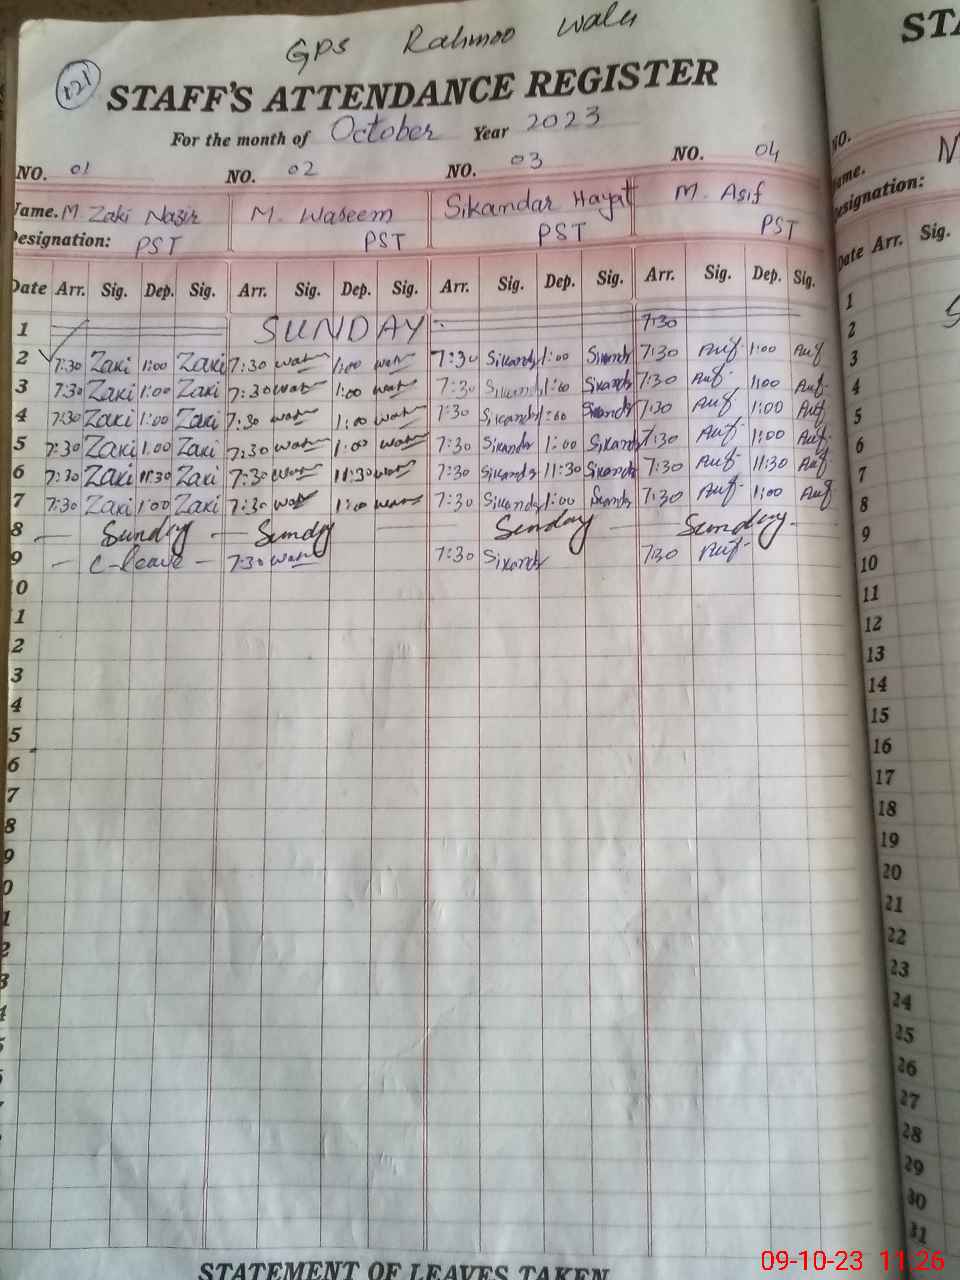 GPS Rahmoo Wala
121
STAFF'S ATTENDANCE REGISTER
For the month of October Year 2023
NO. 01 NO. 02 NO. 03 NO. 04
Name. M Zaki Nazir M. Waseem Sikandar Hayat M. Asif
Designation: PST PST PST PST
Date Arr. Sig. Dep. Sig. Arr. Sig. Dep. Sig. Arr. Sig. Dep. Sig. Arr. Sig. Dep. Sig.
1 SUNDAY 7:30
2 7:30 Zaki 1:00 Zaki 7:30 1:00 7:30 Sikandr 1:00 Sikandr 7:30 Asif 1:00 Asif
3 7:30 Zaki 1:00 Zaki 7:30 1:00 7:30 Sikandr 1:00 Sikandr 7:30 Asif 1:00 Asif
4 7:30 Zaki 1:00 Zaki 7:30 1:00 7:30 Sikandr 1:00 Sikandr 7:30 Asif 1:00 Asif
5 7:30 Zaki 1:00 Zaki 7:30 1:00 7:30 Sikandr 1:00 Sikandr 7:30 Asif 1:00 Asif
6 7:30 Zaki 11:30 Zaki 7:30 11:30 7:30 Sikandr 11:30 Sikandr 7:30 Asif 11:30 Asif
7 7:30 Zaki 1:00 Zaki 7:30 1:00 7:30 Sikandr 1:00 Sikandr 7:30 Asif 1:00 Asif
8 Sunday Sunday Sunday Sunday
9 C-leave 7:30 7:30 Sikandr 7:30 Asif
0
1
2
3
4
5
6
7
8
9
0
1
2
3
STATEMENT OF LEAVES TAKEN
STA
NO.
ame. N
esignation:
Date Arr. Sig.
1
2
3
4
5
6
7
8
9
10
11
12
13
14
15
16
17
18
19
20
21
22
23
24
25
26
27
28
29
30
31
09-10-23 11:26